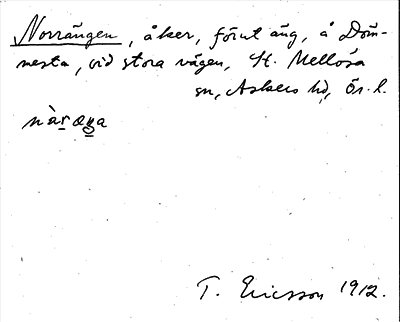 Norrängen, åker, förut äng, å Döm-
nesta, vid stora vägen, St. Mellösa
sn, Askers hd, Ör. l.
nàræŋa
T. Ericsson 1912.